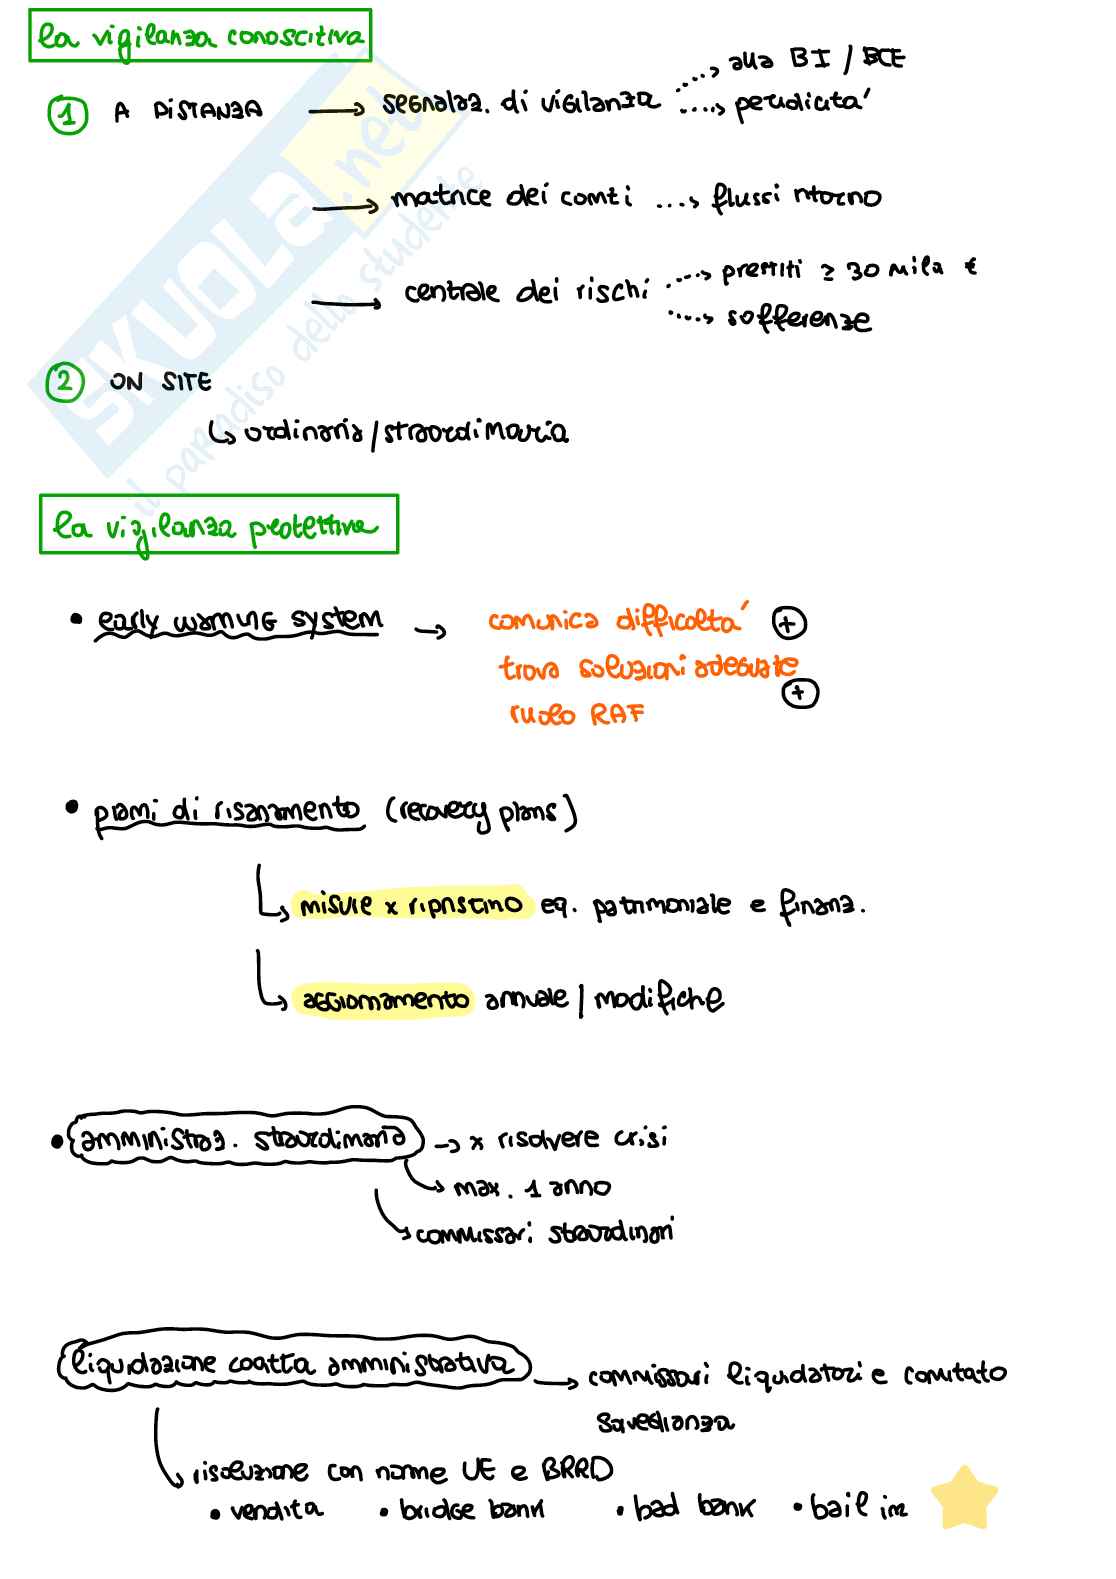 la vigilanza conoscitiva
1 A DISTANZA → segnalaz. di vigilanza → alla BI / BCE
→ periodicità
→ matrice dei conti → flussi ritorno
→ centrale dei rischi → prestiti ≥ 30 mila €
→ sofferenze
2 ON SITE
↳ ordinaria/straordinaria
la vigilanza protettiva
• early warning system → comunica difficoltà +
trova soluzioni adeguate
+
ruolo RAF
• piani di risanamento (recovery plans)
↳ misure x ripristino eq. patrimoniale e finanz.
↳ aggiornamento annuale / modifiche
• amministraz. straordinaria → x risolvere crisi
→ max. 1 anno
→ commissari straordinari
liquidazione coatta amministrativa → commissari liquidatori e comitato
sorveglianza
↳ risoluzione con norme UE e BRRD
• vendita • bridge bank • bad bank • bail in
SKUOLA.net
il paradiso dello studente